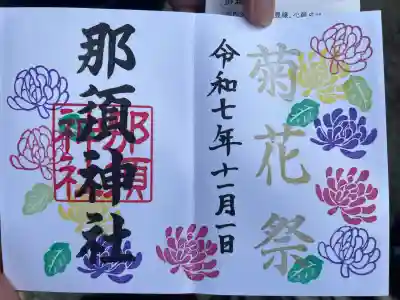 菊花祭
令和七年十一月一日
那須神社
那須
神社